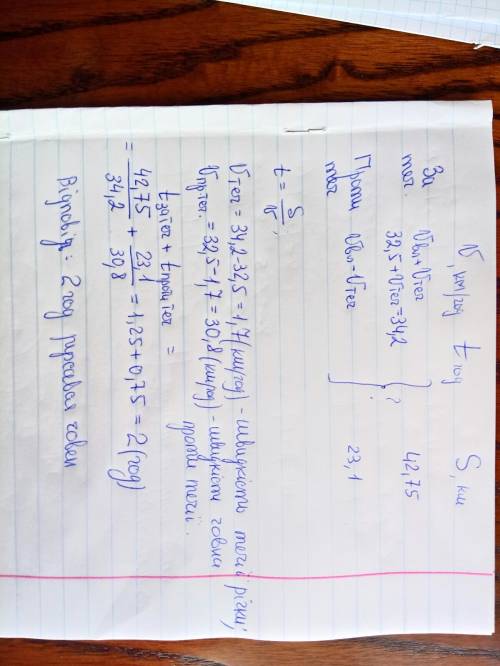 V, км/год t год S, км
За теч. Vвл + Vтеч 42,75
32,5 + Vтеч = 34,2 } ?
Проти теч Vвл - Vтеч 23,1
t = S/V;
Vтеч = 34,2 - 32,5 = 1,7 (км/год) - швидкість течії річки;
Vпр.теч. = 32,5 - 1,7 = 30,8 (км/год) - швидкість човна
проти течії.
t за теч + t пр.теч =
= 42,75/34,2 + 23,1/30,8 = 1,25 + 0,75 = 2 (год)
Відповідь: 2 год рухався човен